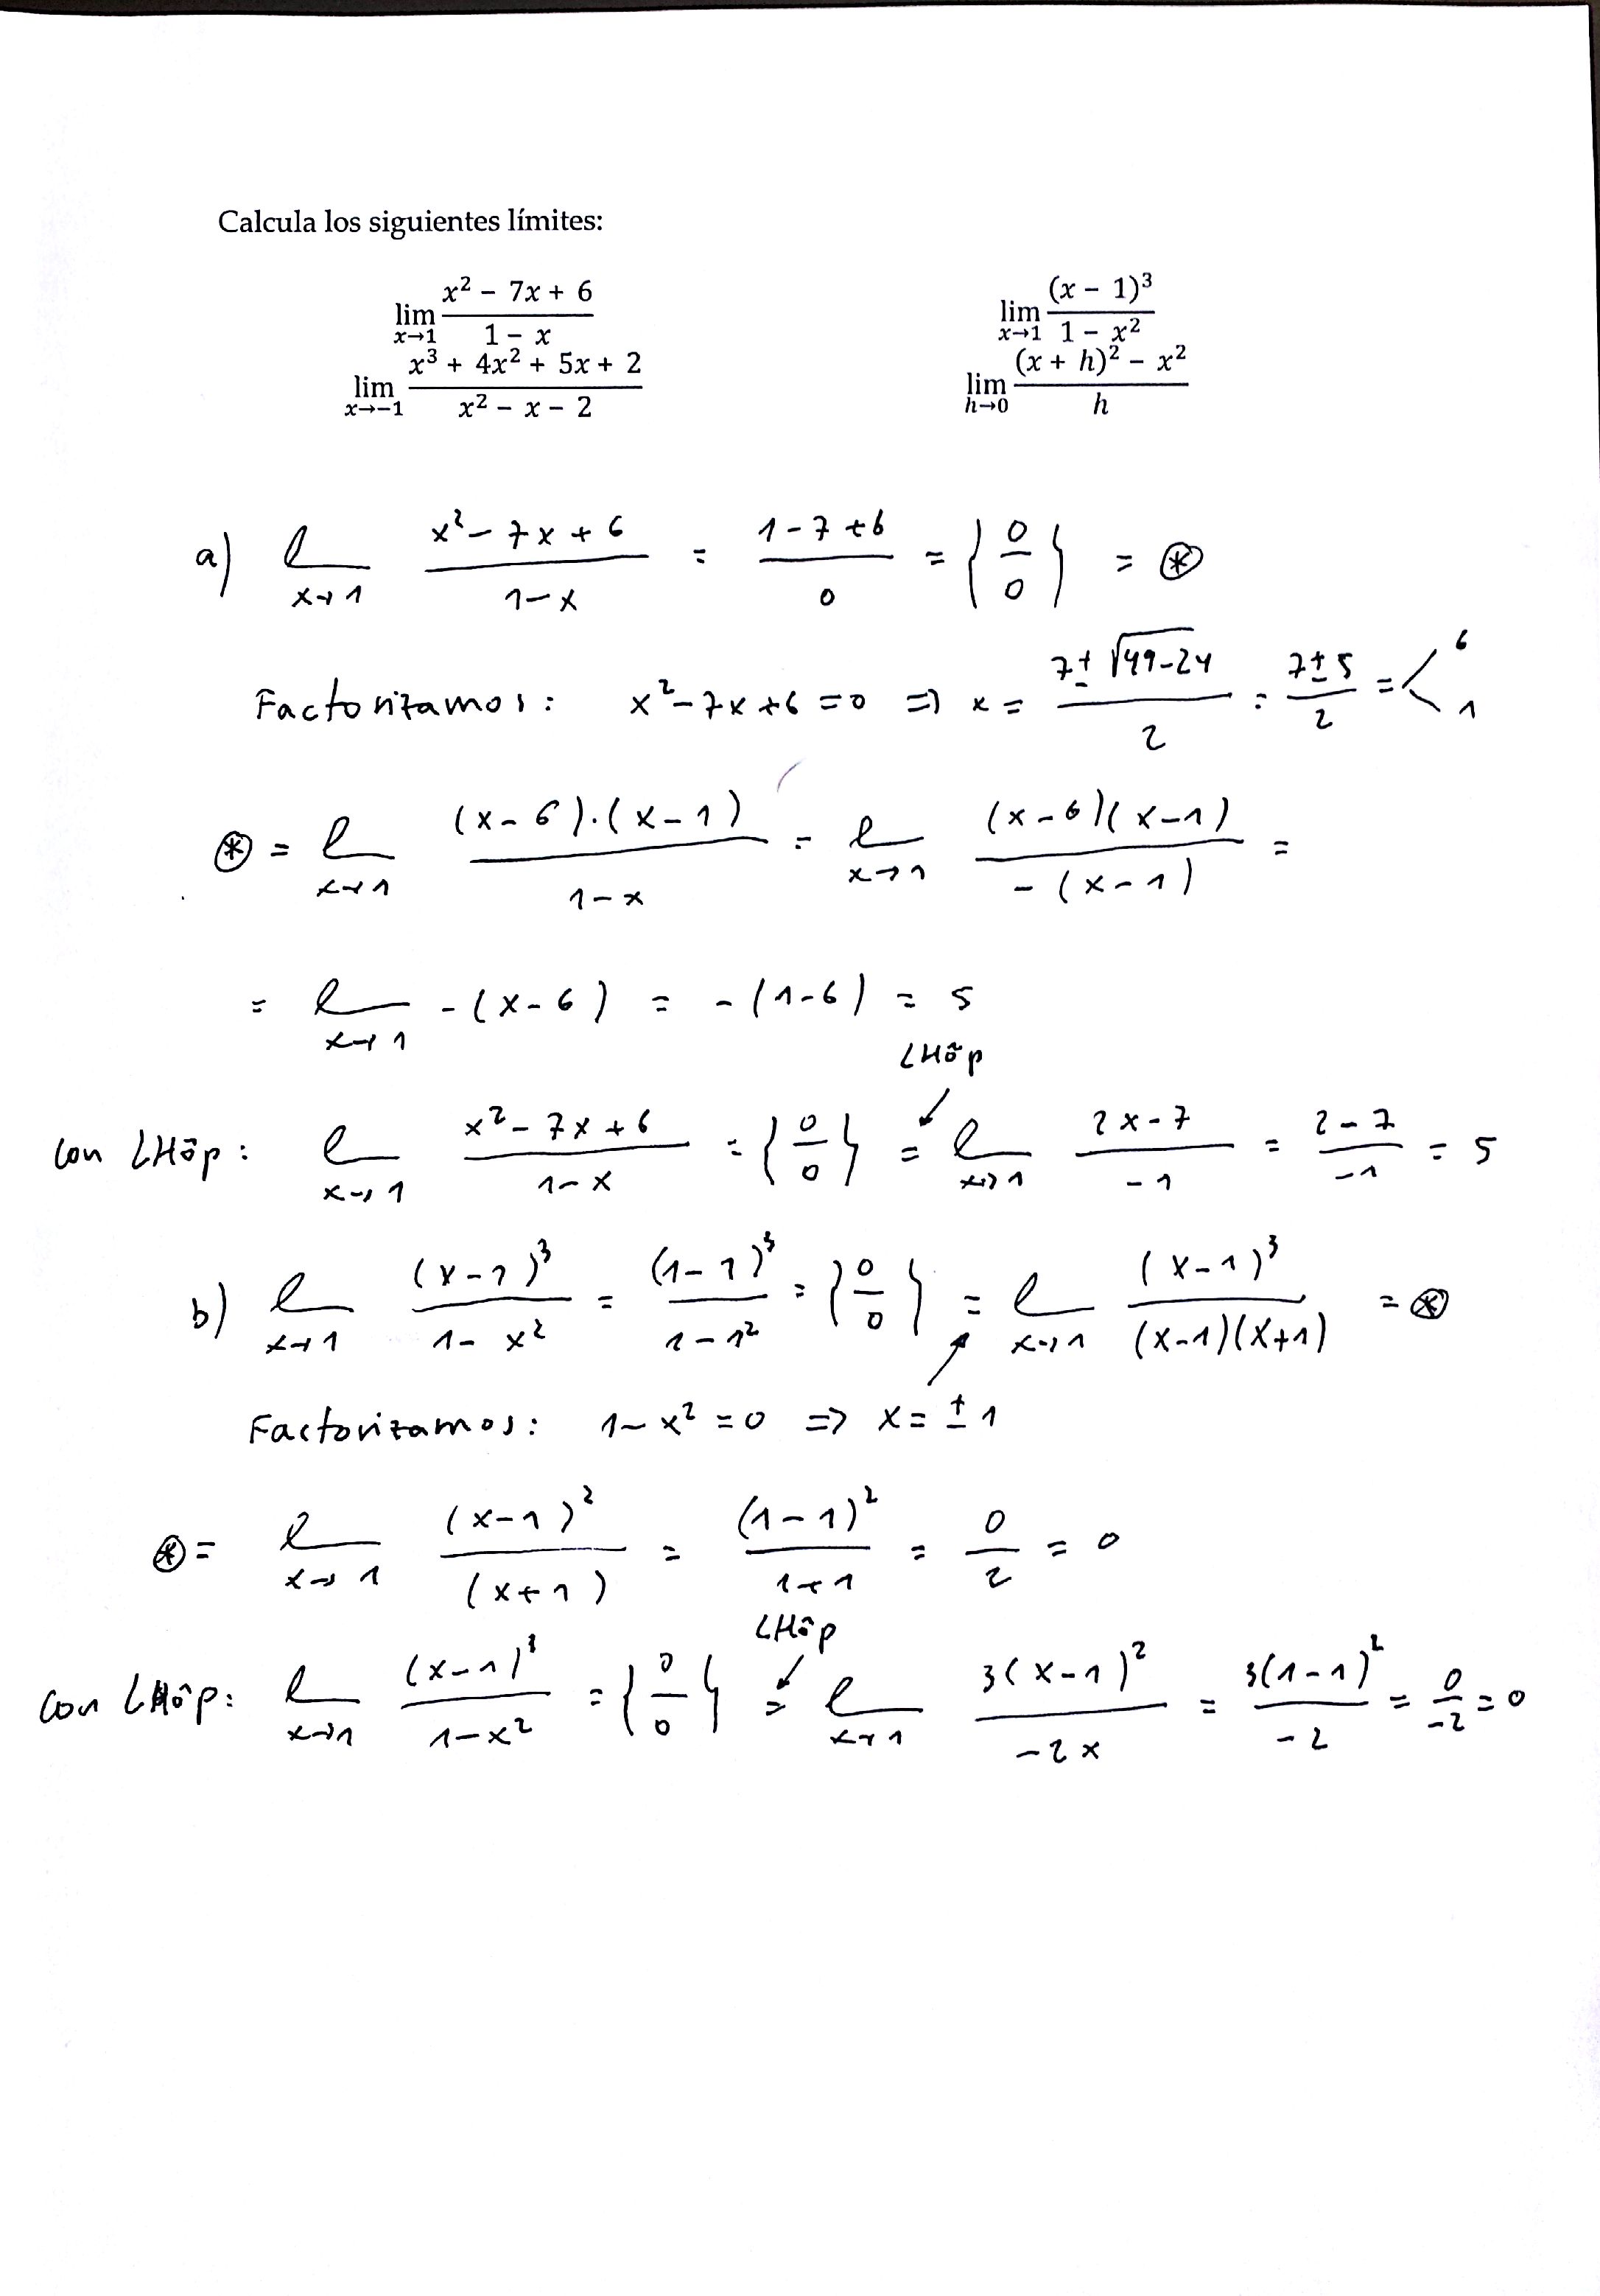 Calcula los siguientes límites:
lim x→1 (x² − 7x + 6)/(1 − x)    lim x→1 (x − 1)³/(1 − x²)
lim x→−1 (x³ + 4x² + 5x + 2)/(x² − x − 2)    lim h→0 ((x + h)² − x²)/h
a) l x→1 (x² − 7x + 6)/(1 − x) = (1 − 7 + 6)/0 = {0/0} = ⊛
Factorizamos: x² − 7x + 6 = 0 ⇒ x = (7 ± √49 − 24)/2 = (7 ± 5)/2 = < 6 1
⊛ = l x→1 (x − 6)·(x − 1)/(1 − x) = l x→1 (x − 6)(x − 1)/−(x − 1) =
= l x→1 −(x − 6) = −(1 − 6) = 5
LHôp
Con LHôp: l x→1 (x² − 7x + 6)/(1 − x) = {0/0} = l x→1 (2x − 7)/−1 = (2 − 7)/−1 = 5
b) l x→1 (x − 1)³/(1 − x²) = (1 − 1)³/(1 − 1²) = {0/0} = l x→1 (x − 1)³/(x − 1)(x + 1) = ⊛
Factorizamos: 1 − x² = 0 ⇒ x = ± 1
⊛ = l x→1 (x − 1)²/(x + 1) = (1 − 1)²/(1 + 1) = 0/2 = 0
LHôp
Con LHôp: l x→1 (x − 1)³/(1 − x²) = {0/0} = l x→1 3(x − 1)²/(−2x) = 3(1 − 1)²/−2 = 0/−2 = 0